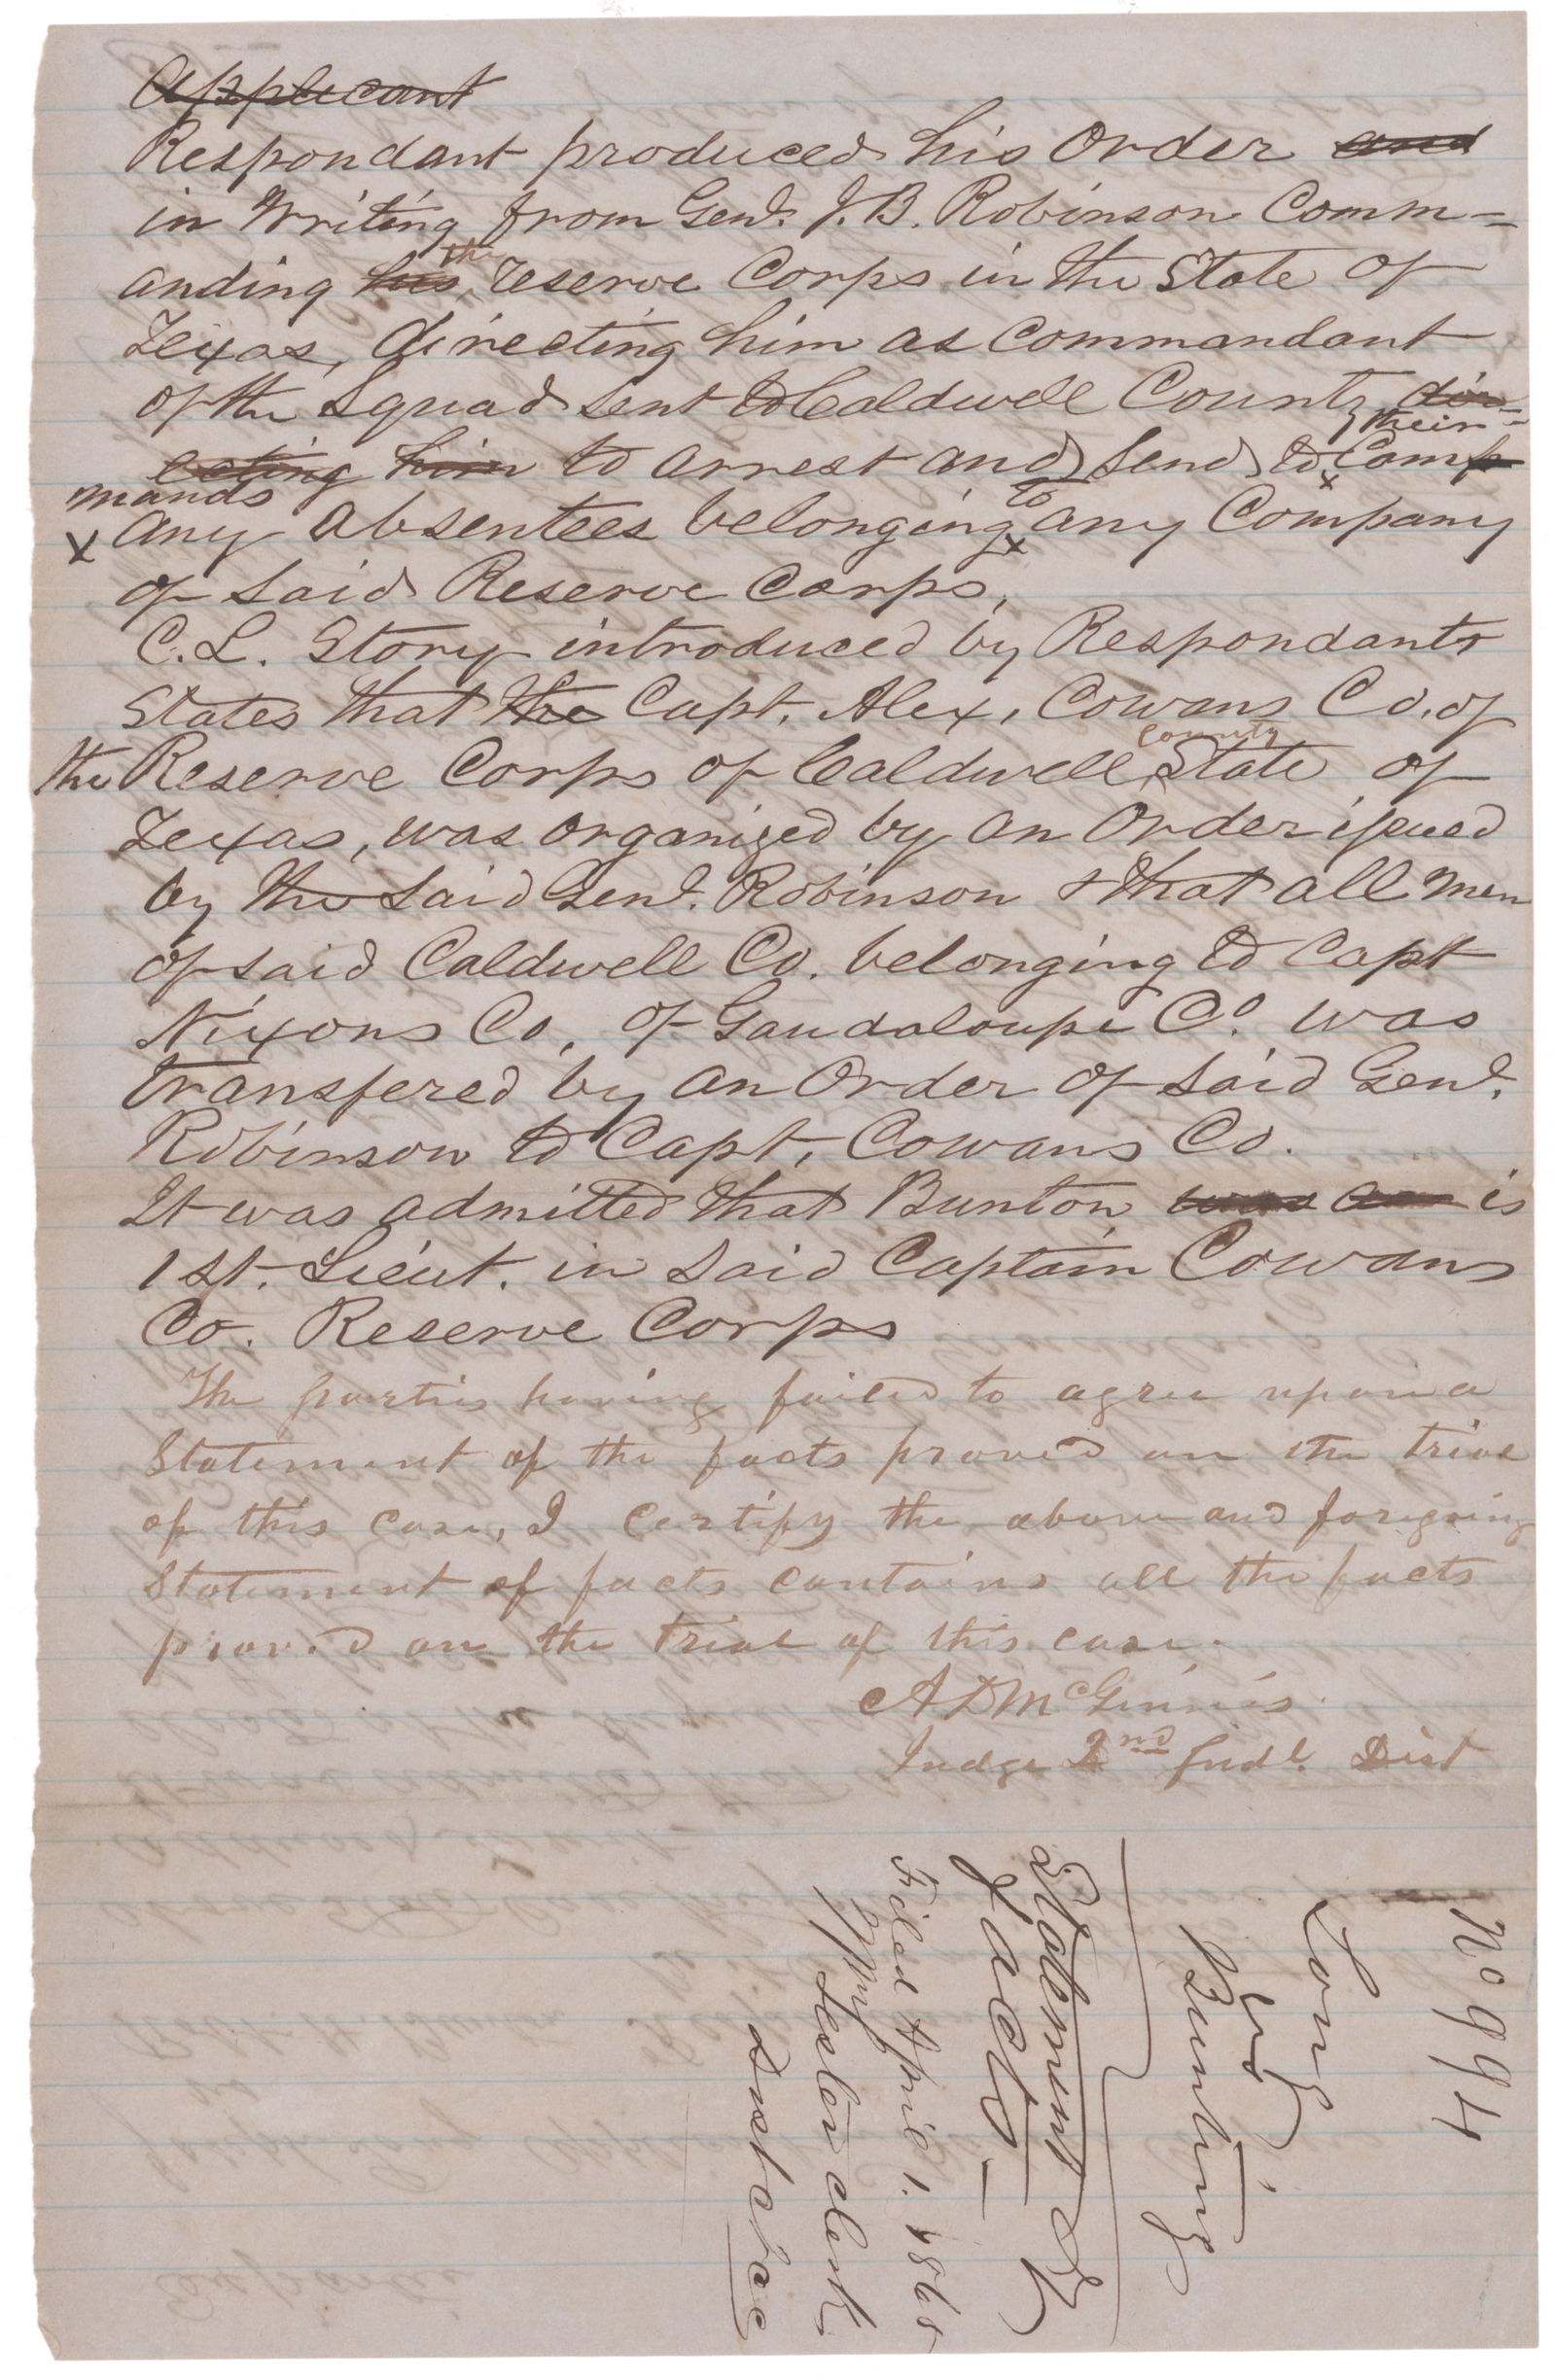 Applicant
Respondant produced his Order and
in Writing from Genl. J. B. Robinson Comm-
anding his the Reserve Corps in the State of
Texas, directing him as Commandant
of the Squad sent to Caldwell County dir-
ecting him to arrest and send to their Comp
mands
x any absentees belonging to any Company
of said Reserve Corps,
C. L. Story introduced by Respondants
States that the Capt. Alex, Cowans Co. of
the Reserve Corps of Caldwell County State of
Texas, was organized by an Order issued
by the said Genl. Robinson & that all men
of said Caldwell Co. belonging to Capt
Nixons Co, of Gaudaloupe Co. was
transfered by an Order of said Genl.
Robinson to Capt, Cowans Co.
It was admitted that Bunton was an is
1st. Lieut. in said Captain Cowans
Co. Reserve Corps
The parties having failed to agree upon a
Statement of the facts proved on the trial
of this case, I certify the above and foregoing
Statement of facts contains all the facts
proved on the trial of this case.
A D McGinnis
Judge 2nd Judl. Dist
No 994
Long
vs
Bunting
Statement of
facts
Filed April 1. 1865
clerk